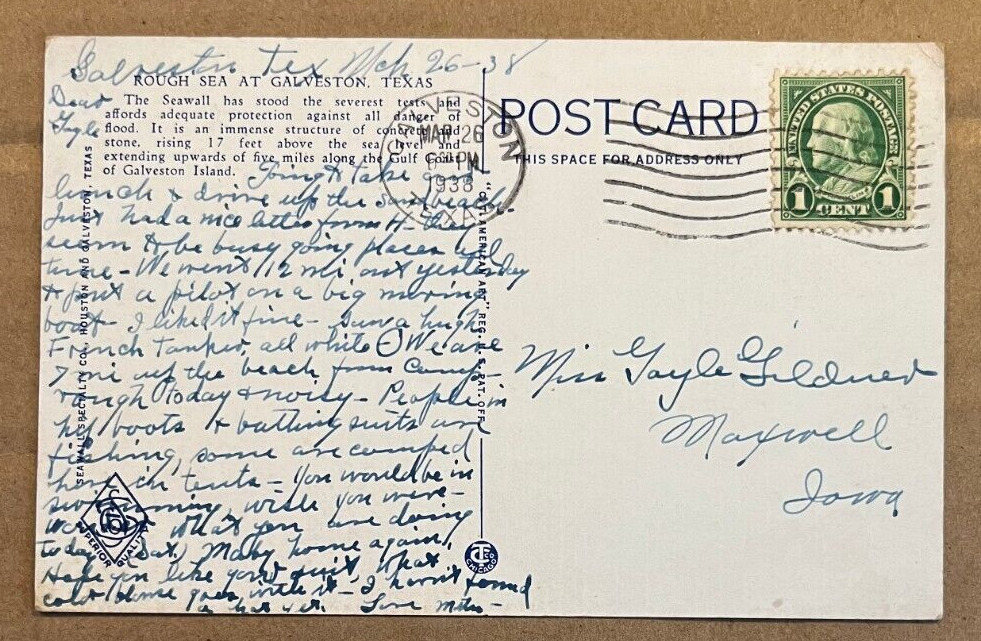 Galveston Tex Mch 26-38
ROUGH SEA AT GALVESTON, TEXAS
Dear
Gayle
The Seawall has stood the severest tests and
affords adequate protection against all danger of
flood. It is an immense structure of concrete and
stone, rising 17 feet above the sea level and
extending upwards of five miles along the Gulf Coast
of Galveston Island.
Going to take our
lunch & drive up the beach
Just had a nice letter from H- they
seem to be busy going places all
time - We went 12 mi out yesterday
& put a pilot on a big moving
boat - I liked it fine - Saw a huge
French tanker, all white We are
7 mi up the beach from Camp -
rough today & noisy - People in
hip boots & bathing suits are
fishing, some are camped
here in tents - You would be in
swimming, wish you were -
what you are doing
today (Sat.) Maby home again,
Hope you like your suit, What
color blouse goes with it - I havn't found
a hat yet. Love
SEAWALL SPECIALTY CO., HOUSTON AND GALVESTON, TEXAS
SUPERIOR QUALITY
POST CARD
THIS SPACE FOR ADDRESS ONLY
GALVESTON
MAR 26
PM
1938
TEXAS
UNITED STATES POSTAGE
1 CENT 1
"C.T. AMERICAN ART" REG. U.S. PAT. OFF.
CHICAGO
Miss Gayle Gildner
Maxwell
Iowa